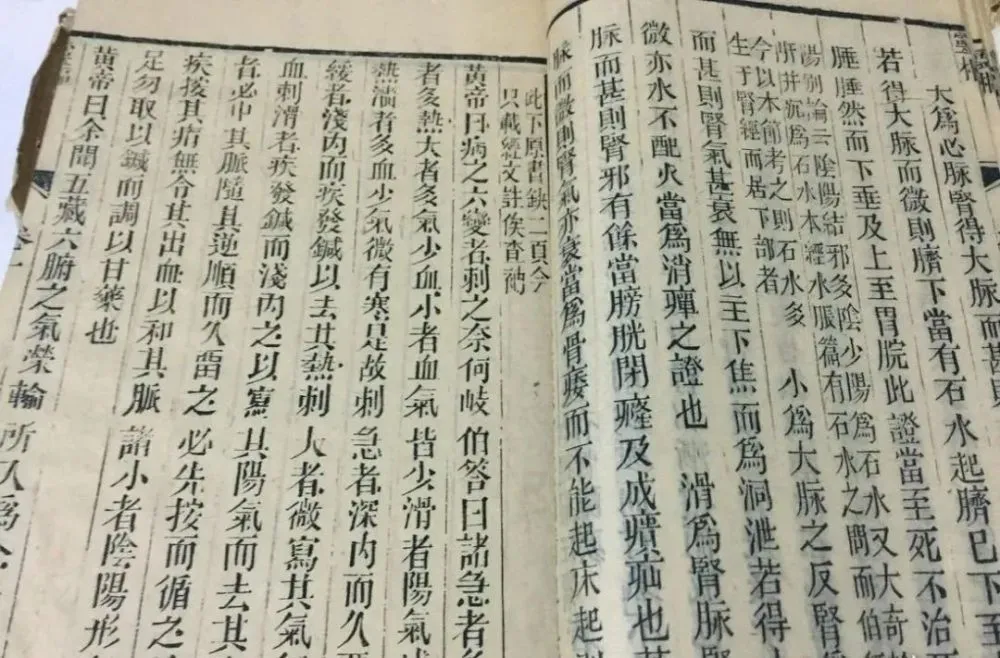 靈樞
大為必脉腎得大脉而甚則
若得大脉而微則臍下當有石水起臍已下至
腄腄然而下垂及上至胃脘此證當至死不治
陽別論云陰陽結邪多陰少陽為石水又大奇
肝并沉為石水本經水脹篇有石水之問而伯
今以本節考之則石水多
生于腎經而居下部者
小為大脉之反腎
而甚則腎氣甚衰無以主下焦而為洞泄若得
微亦水不配火當為消癉之證也 滑為腎脉
脉而甚則腎邪有餘當膀胱閉癃及成㿗疝也
脉而微則腎氣亦衰當為骨痿而不能起床起
此下原書缺二頁今
只載經文註俟查補
黃帝曰病之六變者刺之奈何岐伯答曰諸急者多
者多熱大者多氣少血小者血氣皆少滑者陽氣
熱濇者多血少氣微有寒是故刺急者深內而久
緩者淺內而疾發鍼以去其熱刺大者微寫其氣
血刺滑者疾發鍼而淺內之以寫其陽氣而去其
者必中其脈隨其逆順而久畱之必先按而循之
疾按其痏無令其出血以和其脈諸小者陰陽形
足勿取以鍼而調以甘藥也
黃帝曰余聞五藏六腑之氣榮輸所入為合
卷一